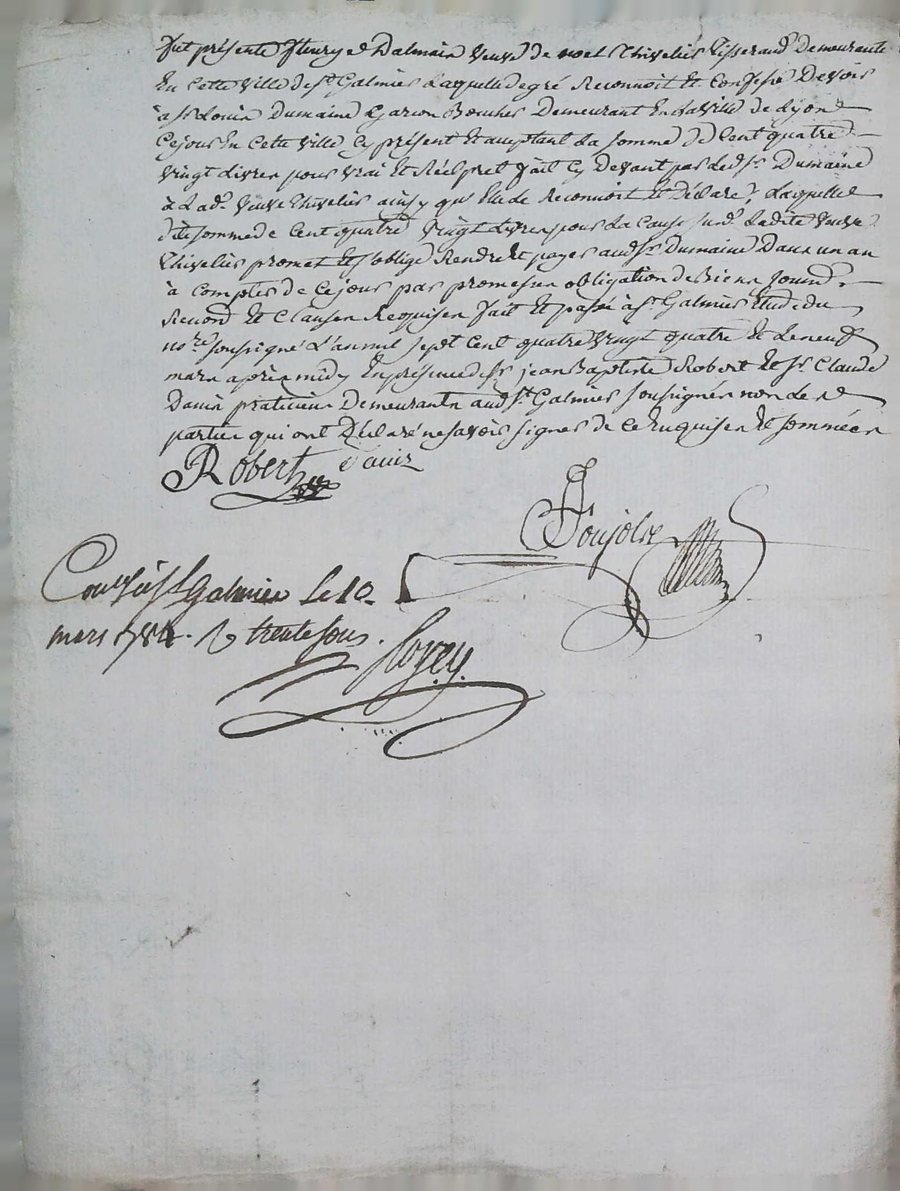 Fut présente fleurye Dalmais veuve de noel thivelier tisserand Demeurante
En cette ville de st Galmier Laquelle de gré Reconnoit Et Confesse Devoir
à sr Louis Dumaine Garcon Boucher Demeurant En la ville de Lyon
Ce jour En cette ville Cy présent Et acceptant La somme de Cent quatre
vingt Livres pour vrai Et Réel pret fait Cy Devant par led. sr. Dumaine
à Lad. veuve thivelier ainsy qu'Elle le Reconnoit Et Déclare, Laquelle
dite somme de Cent quatre vingt Livres pour La Cause susd. Ladite veuve
thivelier promet Et s'oblige Rendre Et payer aud. sr. Dumaine Dans un an
à Compter de Ce jour par promesse obligation de Biens soumd.
Renond Et Clauses Requises fait Et passé à st. Galmier Etude du
nore. soussigné L'an mil sept Cent quatre vingt quatre Et Le neuf
mars après midy En présence de sr jean Baptiste Robert Et sr. Claude
David praticiens Demeurants aud. st. Galmier soussignés non les
parties qui ont Déclaré ne savoir signer de Ce Enquises Et sommées
Robert David
Conlé à st Galmier Le 10
mars 1784. R trente sous.